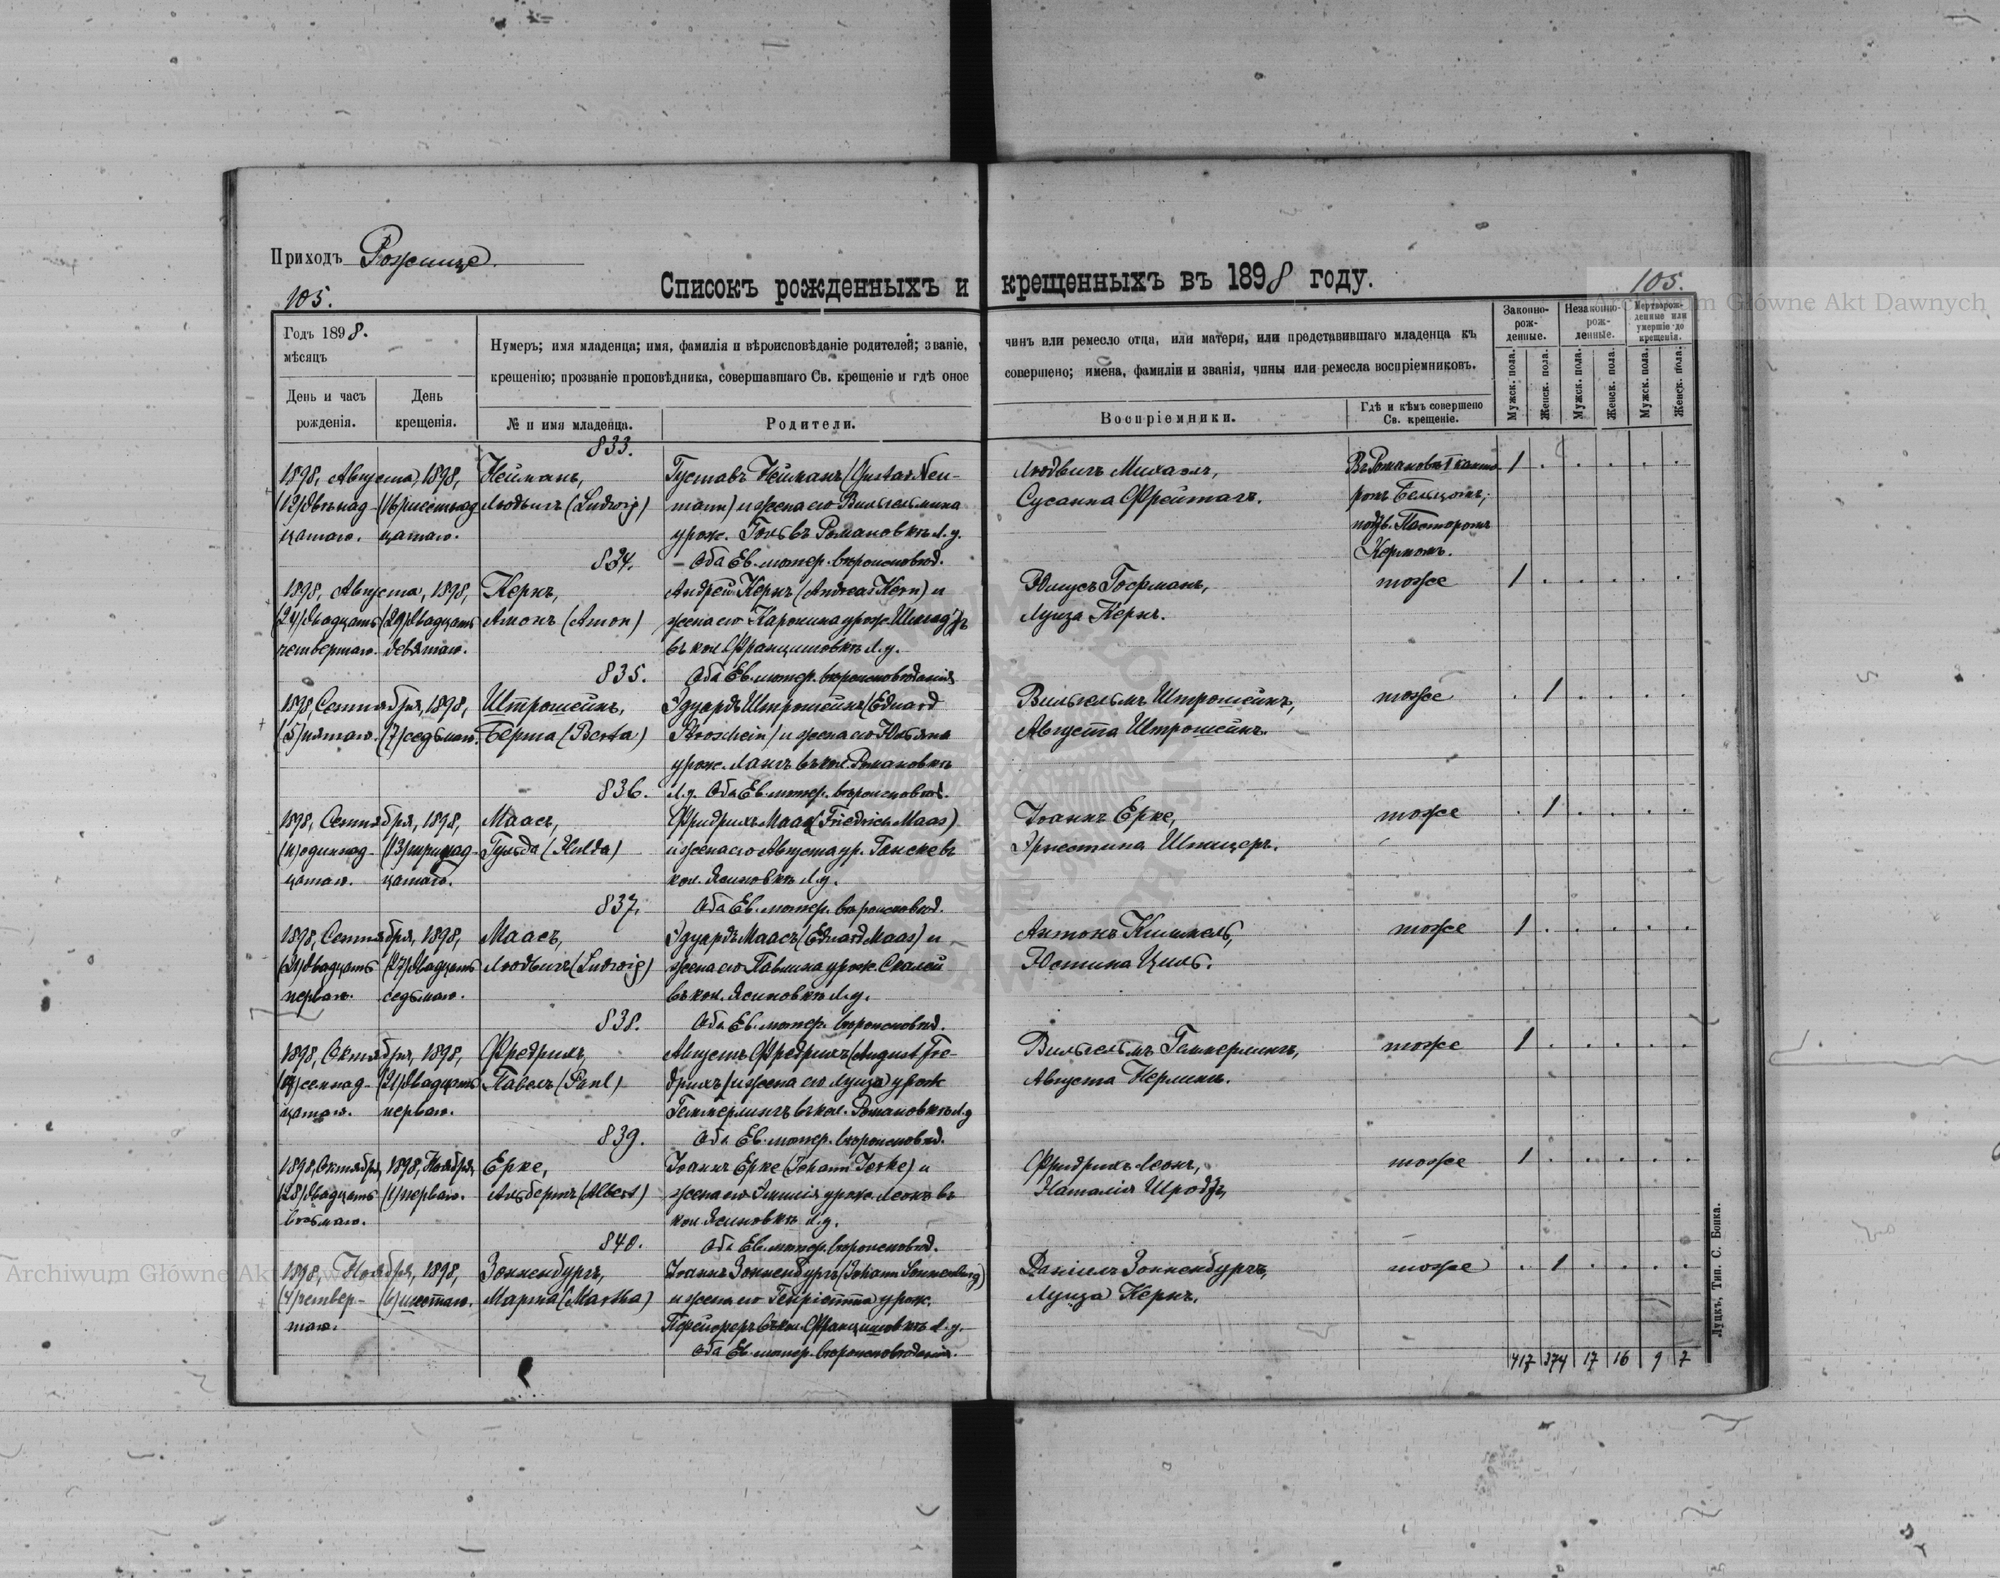 Приходъ Рожище.
105.
105.
Списокъ рожденныхъ и крещенныхъ въ 1898 году.
Годъ 1898.
мѣсяцъ
День и часъ рожденія.
День крещенія.
Нумеръ; имя младенца; имя, фамилія и вѣроисповѣданіе родителей; званіе,
крещенію; прозваніе проповѣдника, совершавшаго Св. крещеніе и гдѣ оное
№ и имя младенца.
Родители.
чинъ или ремесло отца, или матери, или представившаго младенца къ
совершено; имена, фамиліи и званія, чины или ремесла воспріемниковъ.
Воспріемники.
Гдѣ и кѣмъ совершено
Св. крещеніе.
Законно-
рож-
денные.
Незаконно-
рож-
денные.
Мертворож-
денные или
умершіе до
крещенія.
Мужск. пола.
Женск. пола.
Мужск. пола.
Женск. пола.
Мужск. пола.
Женск. пола.
833.
1898, Августа, 1898,
(12) двѣнад-
цатаго.
(16) шестнад
цатаго.
Нейманъ,
Людвигъ (Ludwig)
Густавъ Нейманъ (Gustav Neu-
mann) и жена его Вильгельмина
урож. въ Романовкѣ л. у.
Оба Ев. лютер. вѣроисповѣд.
Людвигъ Михаэль,
Сусанна Фрейтагъ.
Въ Романовкѣ канто
ромъ
подтв. Пасторомъ
Керномъ.
1
834.
1898, Августа, 1898,
(24) двадцать
четвертаго.
(29) двадцать
девятаго.
Кернъ,
Амонъ (Amon)
Андрей Кернъ (Andreas Kern) и
жена его Каролина урож.
въ кол. Францишовкѣ л. у.
Оба Ев. лютер. вѣроисповѣданія
Юлиусъ Гофманъ,
Луиза Кернъ.
тоже
1
835.
1898, Сентября, 1898,
(5) пятаго.
(7) седьмаго.
Штрошейнъ,
Берта (Berta)
Эдуардъ Штрошейнъ (Eduard
Stroschein) и жена его Юльяна
урож. Лангъ въ кол. Романовкѣ
л. у. Оба Ев. лютер. вѣроисповѣд.
Вильгельмъ Штрошейнъ,
Августа Штрошейнъ.
тоже
1
836.
1898, Сентября, 1898,
(11) одиннад-
цатаго.
(13) тринад-
цатаго.
Маасъ,
Гульда (Hulda)
Фридрихъ Маасъ (Friedrich Maas)
и жена его Августа ур. Ганске въ
кол. Ясиновкѣ л. у.
Оба Ев. лютер. вѣроисповѣд.
Іоаннъ Ерке,
Эрнестина Шпицеръ.
тоже
1
837.
1898, Сентября, 1898,
(21) двадцать
перваго.
(27) двадцать
седьмаго.
Маасъ,
Людвигъ (Ludwig)
Эдуардъ Маасъ (Eduard Maas) и
жена его Павлина урож. Скалей
въ кол. Ясиновкѣ л. у.
Оба Ев. лютер. вѣроисповѣд.
Антонъ Киммель,
Юстина Циль.
тоже
1
838.
1898, Октября, 1898,
цатаго.
(21) двадцать
перваго.
Фредрихъ,
Павелъ (Paul)
Августъ Фредрихъ (August Fre-
дрихъ) и жена его Луиза урож
Геммерлингъ въ кол. Романовкѣ л. у
Оба Ев. лютер. вѣроисповѣд.
Вильгельмъ Геммерлингъ,
Августа
тоже
1
839.
1898, Октября, 1898, Ноября,
(28) двадцать
восьмаго.
(1) перваго.
Ерке,
Альбертъ (Albert)
Іоаннъ Ерке (Johann Jerke) и
жена его Эмилія урож. Леонъ въ
кол. Ясиновкѣ л. у.
Оба Ев. лютер. вѣроисповѣд.
Фридрихъ Леонъ,
Наталія Шродъ,
тоже
1
840.
1898, Ноября, 1898,
(4) четвер-
таго.
(6) шестаго.
Зонненбургъ,
Марта (Martha)
Іоаннъ Зонненбургъ (Johann Sonnenburg)
и жена его Генріетта урож.
въ кол. Францишовкѣ л. у.
Оба Ев. лютер. вѣроисповѣданія.
Даніилъ Зонненбургъ,
Луиза Кернъ.
тоже
1
417 374 17 16 9 7
Луцкъ, Тип. С. Бонка.
Archiwum Główne Akt Dawnych
Archiwum Główne Akt Dawnych